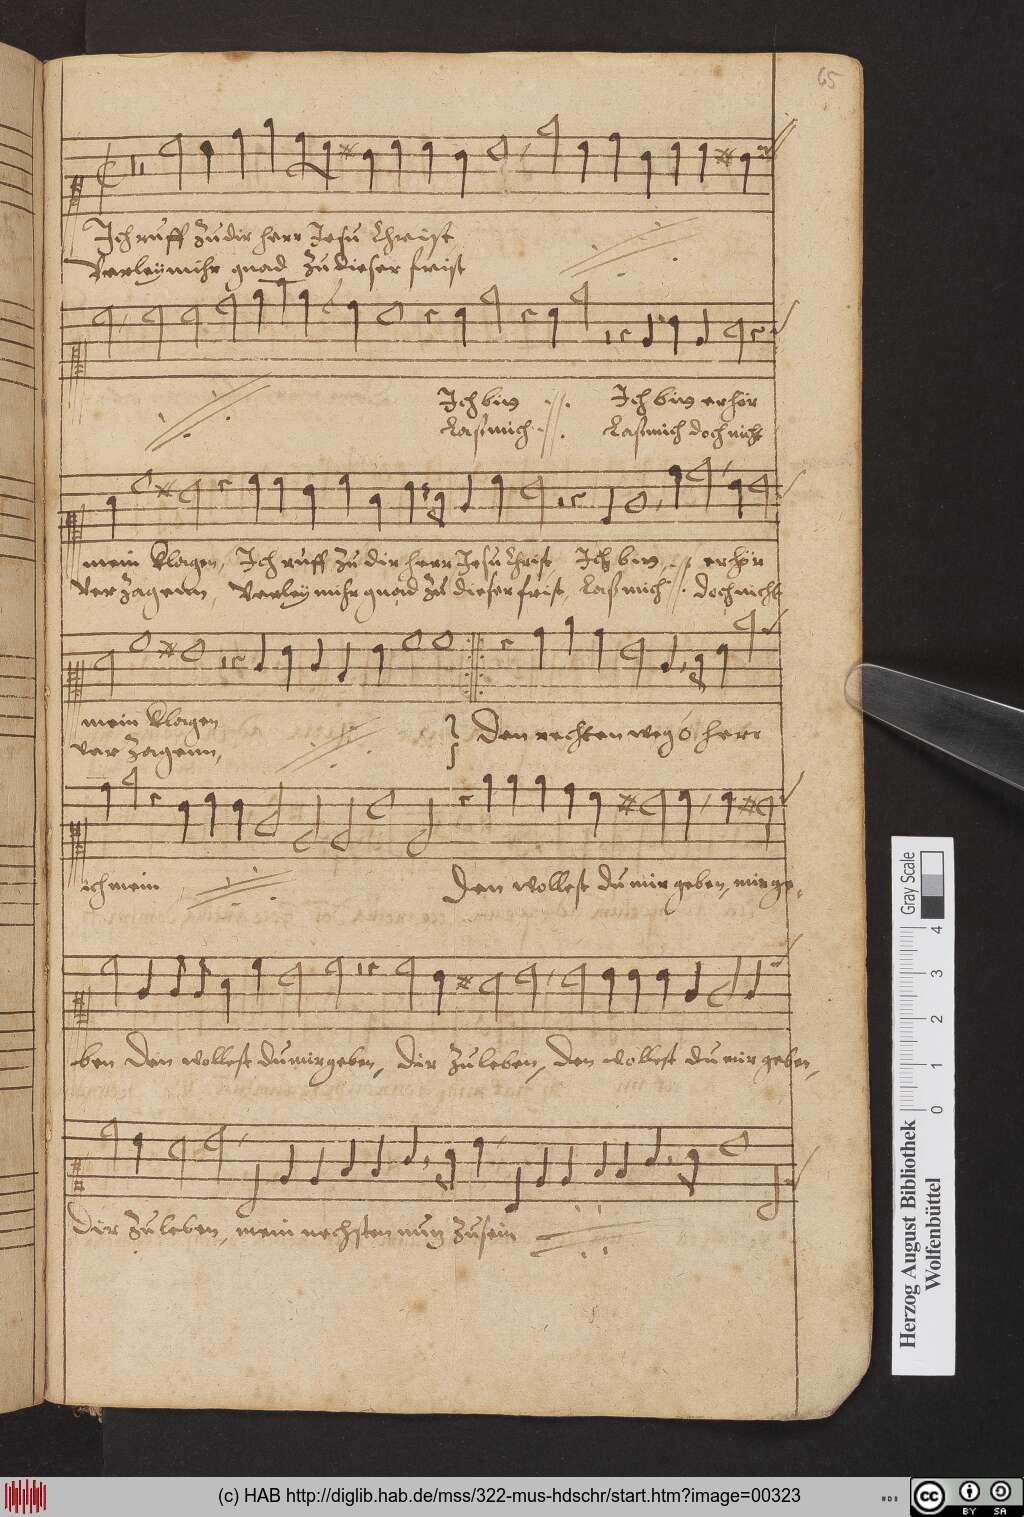 65
Ich ruff zu dir herr Jesu Christ
Verley mihr gnad zu dieser frist
Ich bin Ich bin erhör
Laß mich Laß mich doch nicht
mein klagen, Ich ruff zu dir herr Jesu Christ Ich bin, erhör
verzagenn, Verley mihr gnad zu dieser frist, Laß mich doch nicht
mein klagen
verzagenn,
Den rechten weg ô herr
ich mein Den wollest du mir geben, mir ge-
ben Den wollest du mir geben, dir zu leben, Den wollest du mir geben,
Dir zu leben, mein nechsten nutz zu sein
Gray Scale
4 3 2 1 0
Herzog August Bibliothek
Wolfenbüttel
(c) HAB http://diglib.hab.de/mss/322-mus-hdschr/start.htm?image=00323
cc
BY SA